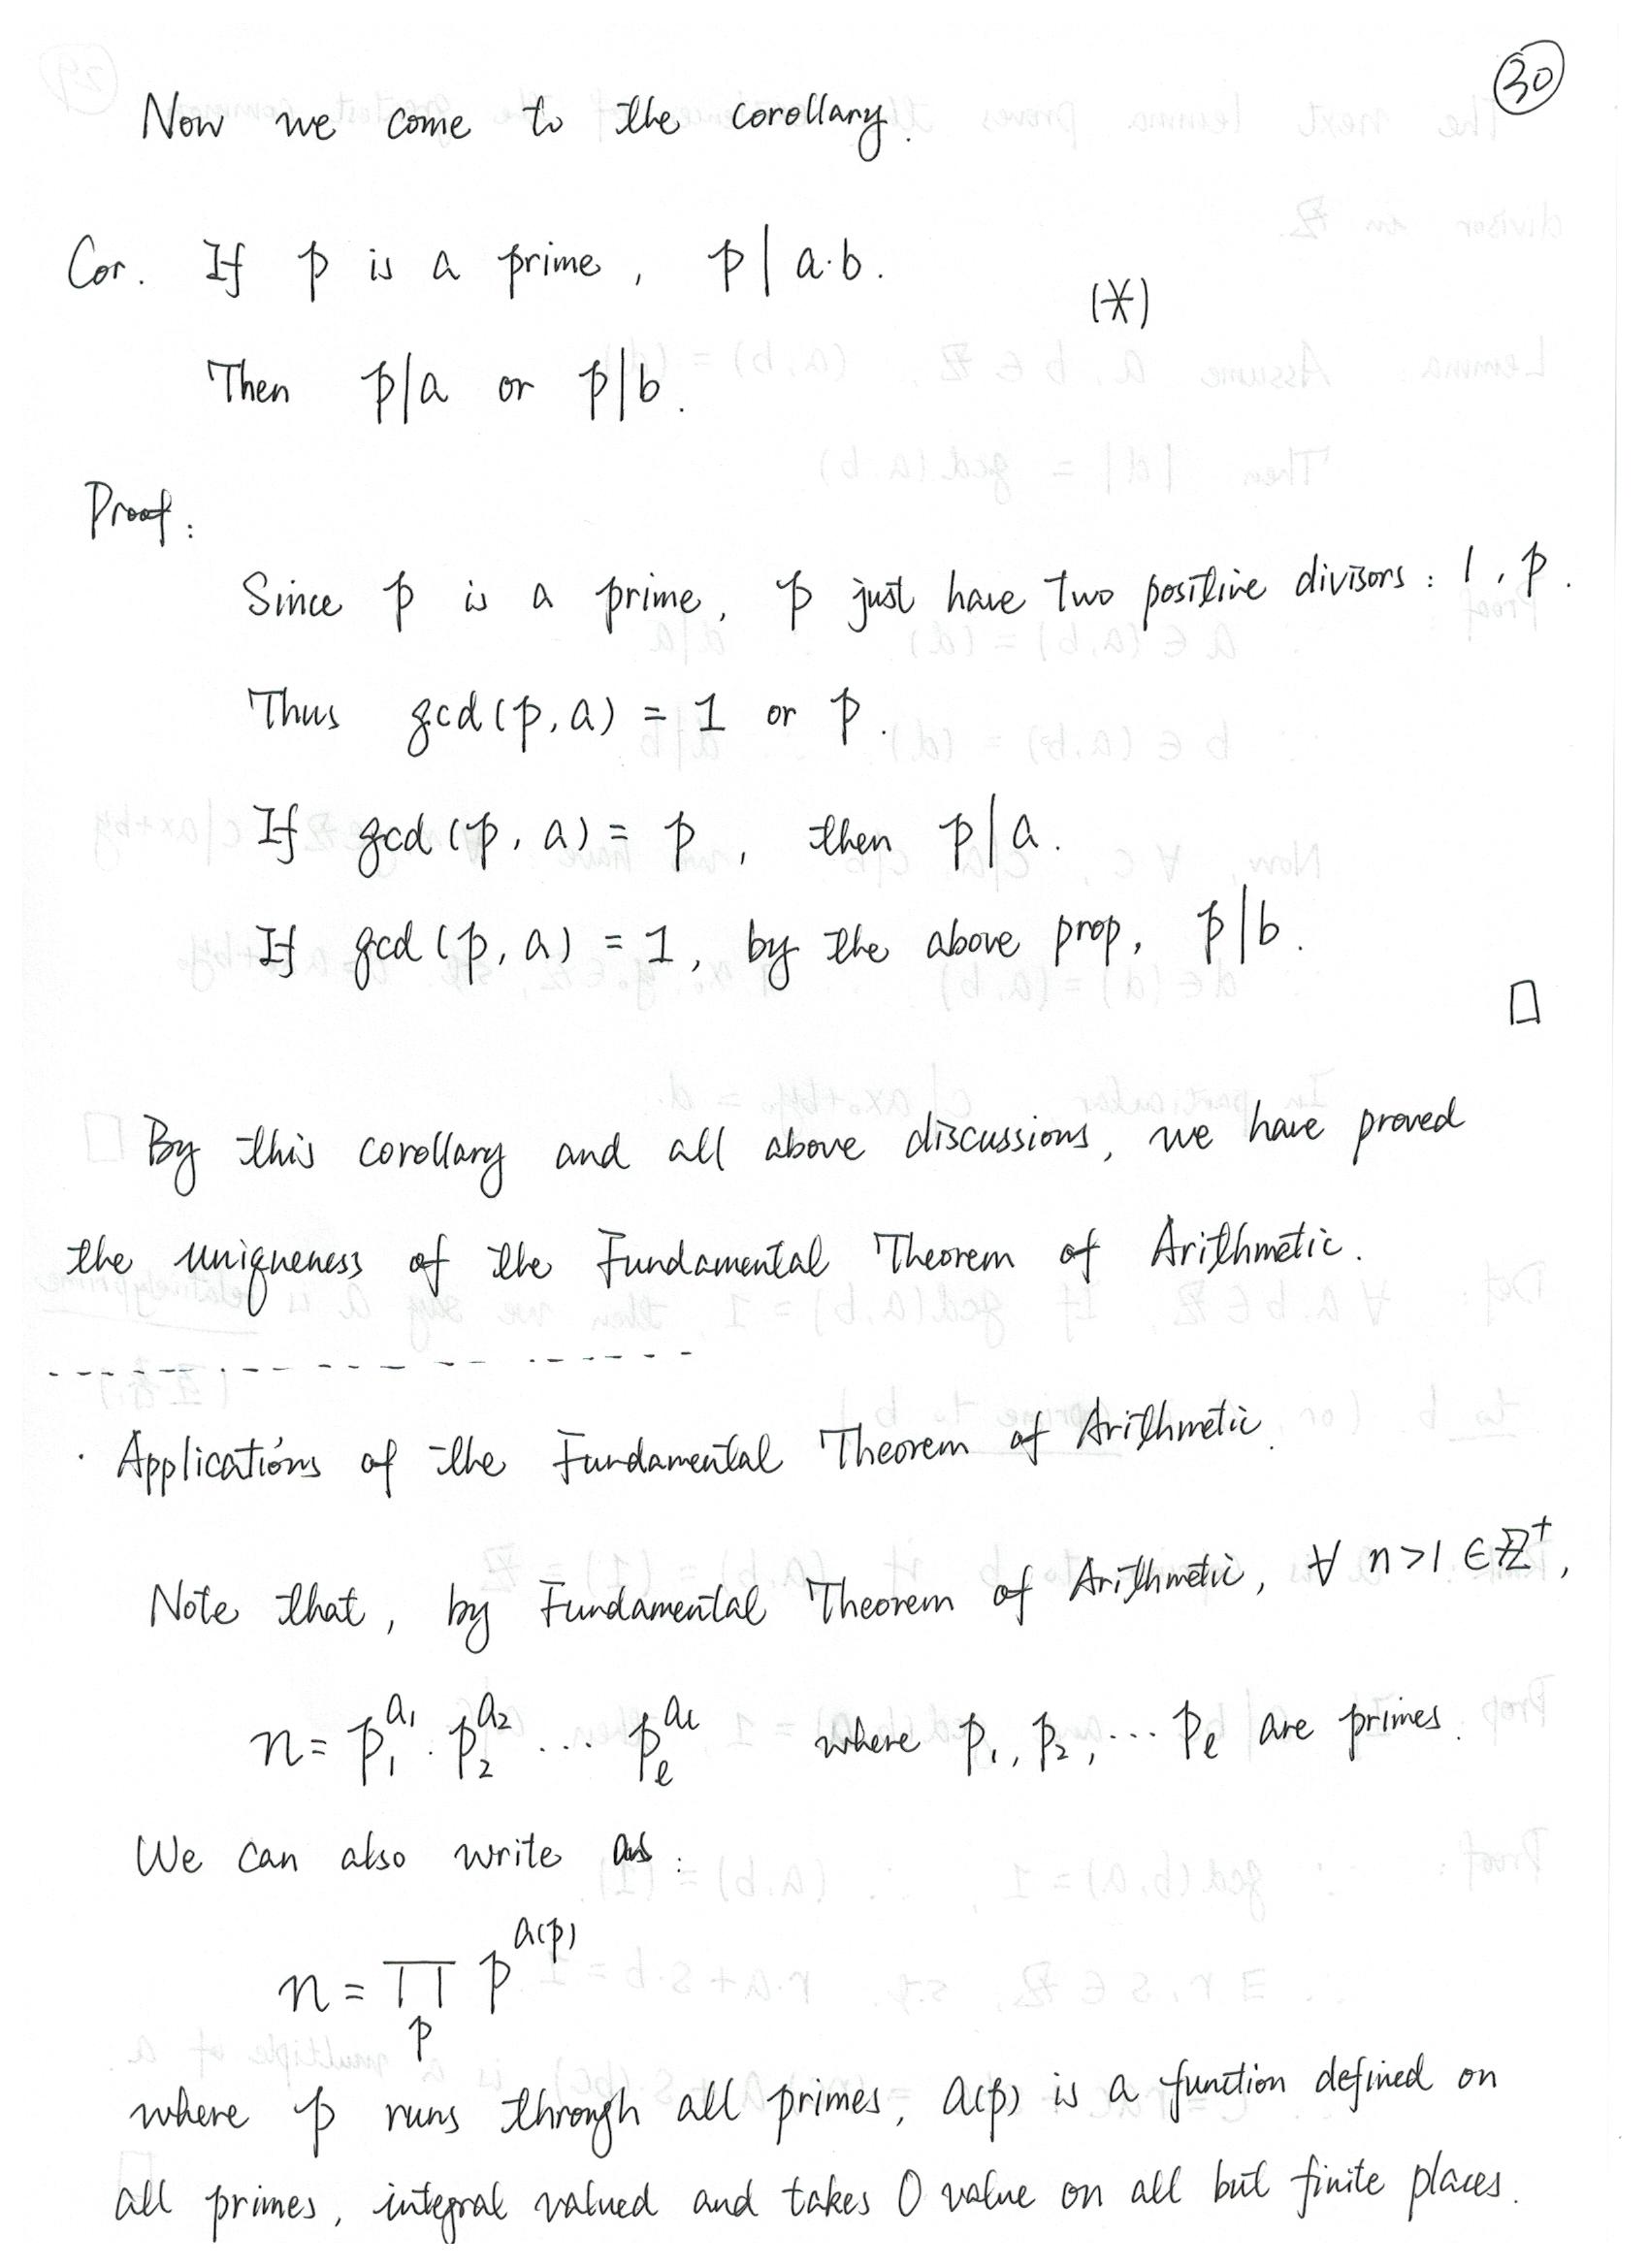 30
Now we come to the corollary.
Cor. If p is a prime, p | a·b.
(*)
Then p|a or p|b.
Proof:
Since p is a prime, p just have two positive divisors: 1, p.
Thus gcd(p, a) = 1 or p.
If gcd(p, a) = p, then p|a.
If gcd(p, a) = 1, by the above prop, p|b.
□
By this corollary and all above discussions, we have proved
the uniqueness of the Fundamental Theorem of Arithmetic.
· Applications of the Fundamental Theorem of Arithmetic.
Note that, by Fundamental Theorem of Arithmetic, ∀ n>1 ∈ ℤ⁺,
n = p₁^{a₁} · p₂^{a₂} ··· p_l^{a_l} where p₁, p₂, ··· p_l are primes.
We can also write as:
n = ∏_p p^{a(p)}
where p runs through all primes, a(p) is a function defined on
all primes, integral valued and takes 0 value on all but finite places.